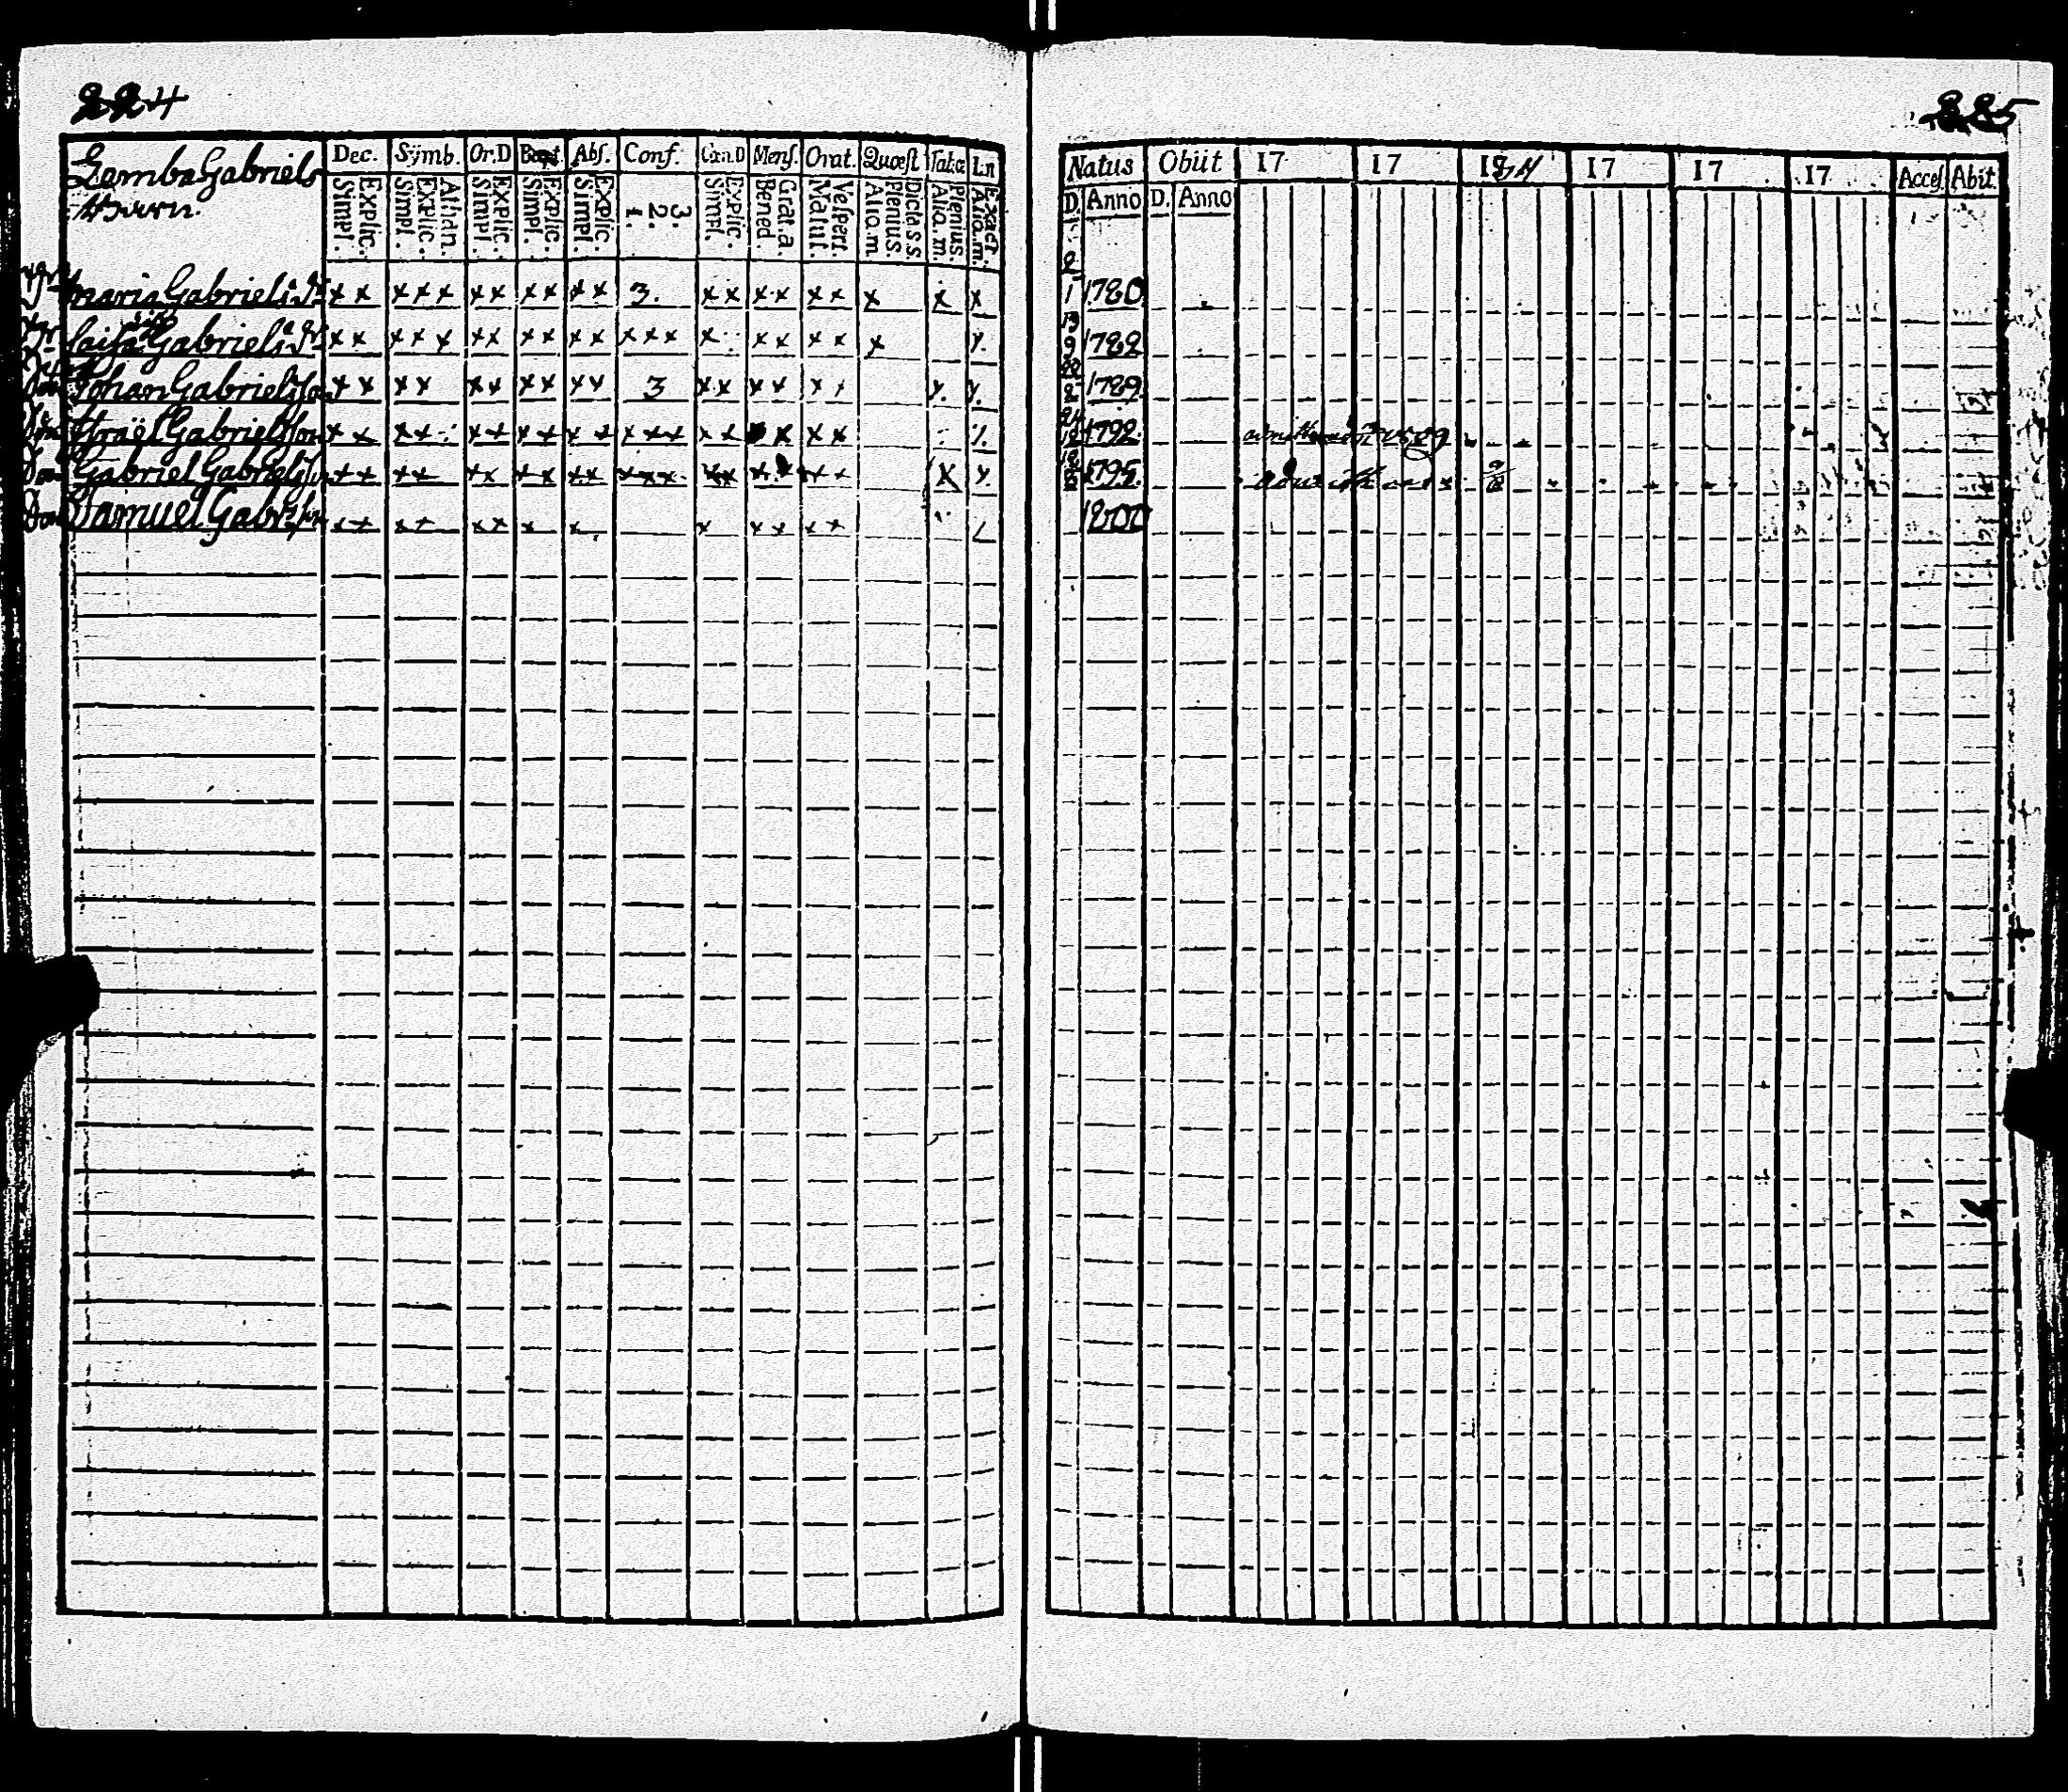 224
Zemba Gabriels
Barn.
Dec. Sÿmb. Or.D Bapt. Abs. Conf. Cœn.D Mens. Orat. Quæst Tabæ Ln
Simpl. Explic. Simpl. Explic. Athan. Simpl. Explic. Simpl. Explic. Simpl. Explic. 1. 2. 3. Simpl. Explic. Bened Grat.a. Matut. Vespert. Aliq.m Plenius. Dicta s.s. Aliq.m. Plenius. Aliq.m. Exact.
Maria Gabriels Dr x x x x x x x x x x x 3. x x x x x x x x x
Caisa Gabriels Dr x x x x x x x x x x x x x x x x x x x x x
Johan Gabrielsson x x x x x x x x x x 3 x x x x x x x x
Israël Gabrielsson x x x x x x x x x x x x x x x x x x
Gabriel Gabrielsson x x x x x x x x x x x x x x x x x x x x x
Samuel Gabrs son x x x x x x x x x x x x x
225
Natus Obiit 17 17 1811 17 17 17 Acces. Abit.
D. Anno D. Anno
2
1 1780
19
9 1782
22
2 1789
24
12 1792.
18
1795.
1800